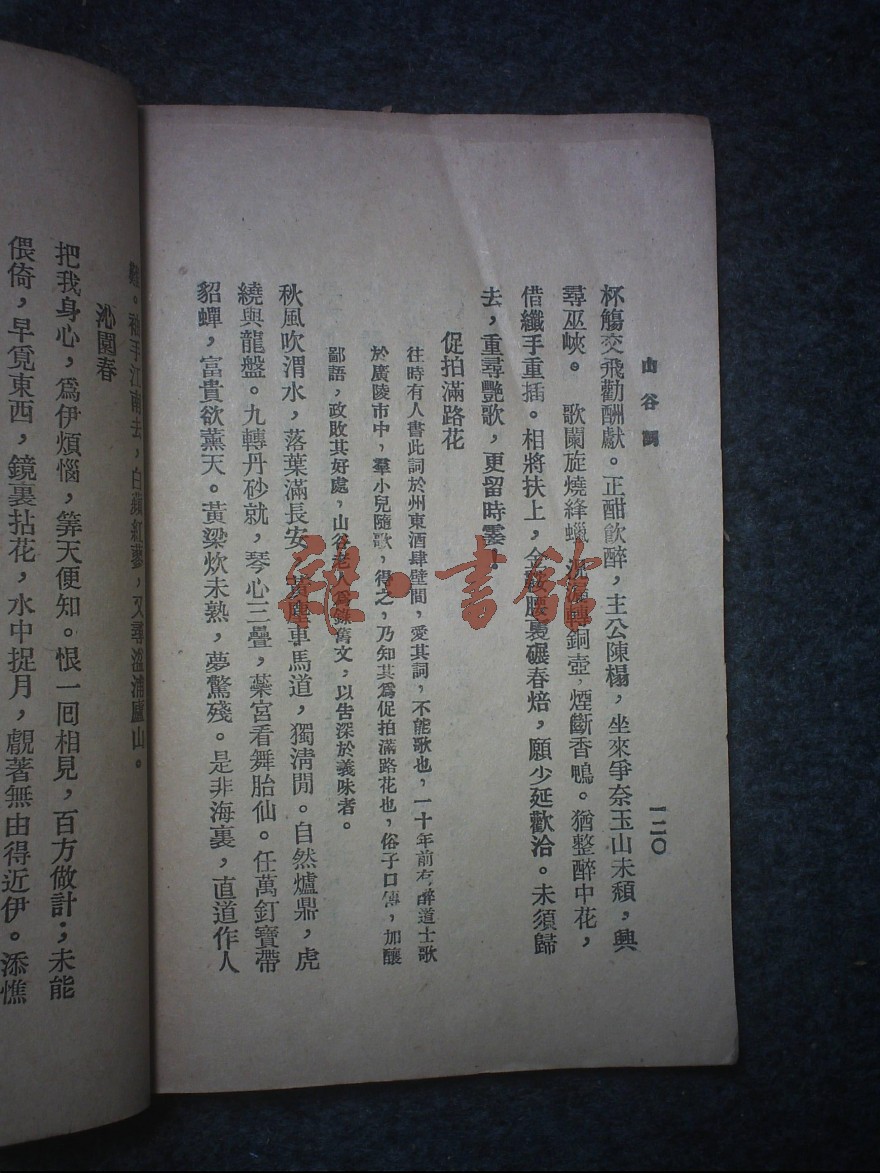 山谷詞
一二〇
杯觴交飛勸酬獻。正酣飲醉,主公陳榻,坐來爭奈玉山未頹,興
尋巫峽。 歌闌旋燒絳蠟,沉漏轉銅壺,煙斷香鴨。猶整醉中花,
借纖手重插。相將扶上,金鞍腰裊碾春焙,願少延歡洽。未須歸
去,重尋艷歌,更留時霎!
促拍滿路花
往時有人書此詞於州東酒肆壁間,愛其詞,不能歌也,一十年前有醉道士歌
於廣陵市中,羣小兒隨歌,得之,乃知其爲促拍滿路花也,俗子口傳,加釀
鄙語,政敗其好處,山谷老人爲錄舊文,以告深於義味者。
秋風吹渭水,落葉滿長安,黃塵車馬道,獨淸閒。自然爐鼎,虎
繞與龍盤。九轉丹砂就,琴心三疊,蘂宮看舞胎仙。任萬釘寶帶
貂蟬,富貴欲薰天。黃粱炊未熟,夢驚殘。是非海裏,直道作人
袖手江南去,白蘋紅蓼,又尋湓浦廬山。
沁園春
把我身心,爲伊煩惱,筭天便知。恨一囘相見,百方做計;未能
偎倚,早覓東西,鏡裏拈花,水中捉月,覷著無由得近伊。添憔
程·書館